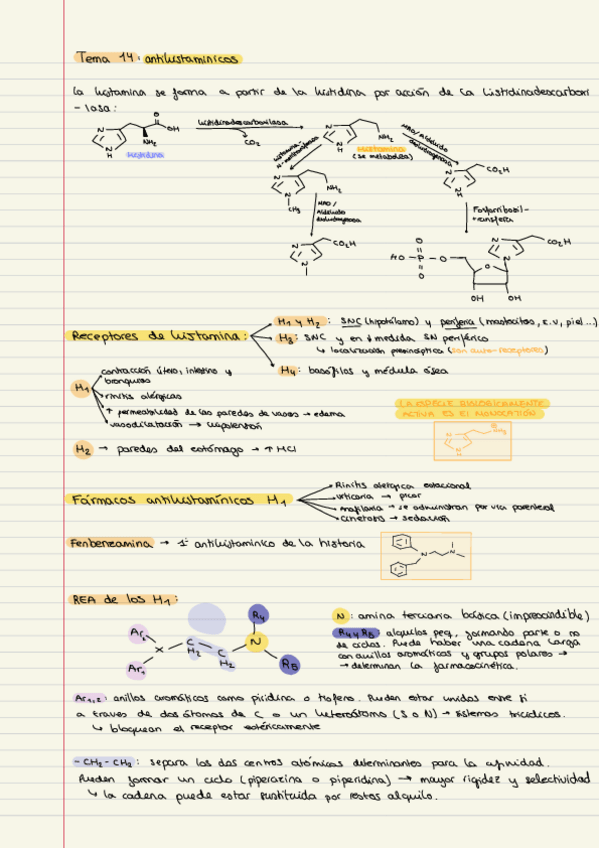 Tema 14: antihistamínicos
La histamina se forma a partir de la histidina por acción de la Listidinadescarboxi
-lasa:
histidinadescarboxilasa
CO2
OH
NH2
Histidina
Histamina
(se metaboliza)
histamina-
N-metiltransferasa
MAO/Aldehído
deshidrogenasa
NH2
CH3
CO2H
MAO/
Aldehído
deshidrogenasa
Fosforribosil-
transferasa
CO2H
CO2H
HO-P-O
OH OH
Receptores de histamina:
H1 y H2: SNC (hipotálamo) y periferia (mastocitos, c.v, piel...)
H3: SNC y en ↓ medida SN periférico
↳ localización presináptica (son auto-receptores)
H4: basófilos y médula ósea
H1
contracción útero, intestino y
bronquios
rinitis alérgicas
↑ permeabilidad de las paredes de vasos → edema
vasodilatación → hipotensión
LA ESPECIE BIOLÓGICAMENTE
ACTIVA ES EL MONOCATIÓN
H2 → paredes del estómago → ↑ HCl
Fármacos antihistamínicos H1
Rinitis alérgica estacional
urticaria → picor
anafilaxia → se administran por vía parenteral
cinetosis → sedación
Fenbenzamina → 1er antihistamínico de la historia
REA de los H1:
Ar2
Ar1
X
C H2
C H2
N
R4
R5
N: amina terciaria básica (imprescindible)
R4 y R5 alquilos peq, formando parte o no
de ciclos. Puede haber una cadena larga
con anillos aromáticos y grupos polares →
→ determinan la farmacocinética.
Ar1,2: anillos aromáticos como piridina o tiofeno. Pueden estar unidos entre sí
a través de dos átomos de C o un heteroátomo (S o N) → sistemas tricíclicos.
↳ bloquean el receptor estéricamente
-CH2-CH2: separa los dos centros atómicos determinantes para la afinidad.
Pueden formar un ciclo (piperazina o piperidina) → mayor rigidez y selectividad
↳ la cadena puede estar sustituida por restos alquilo.